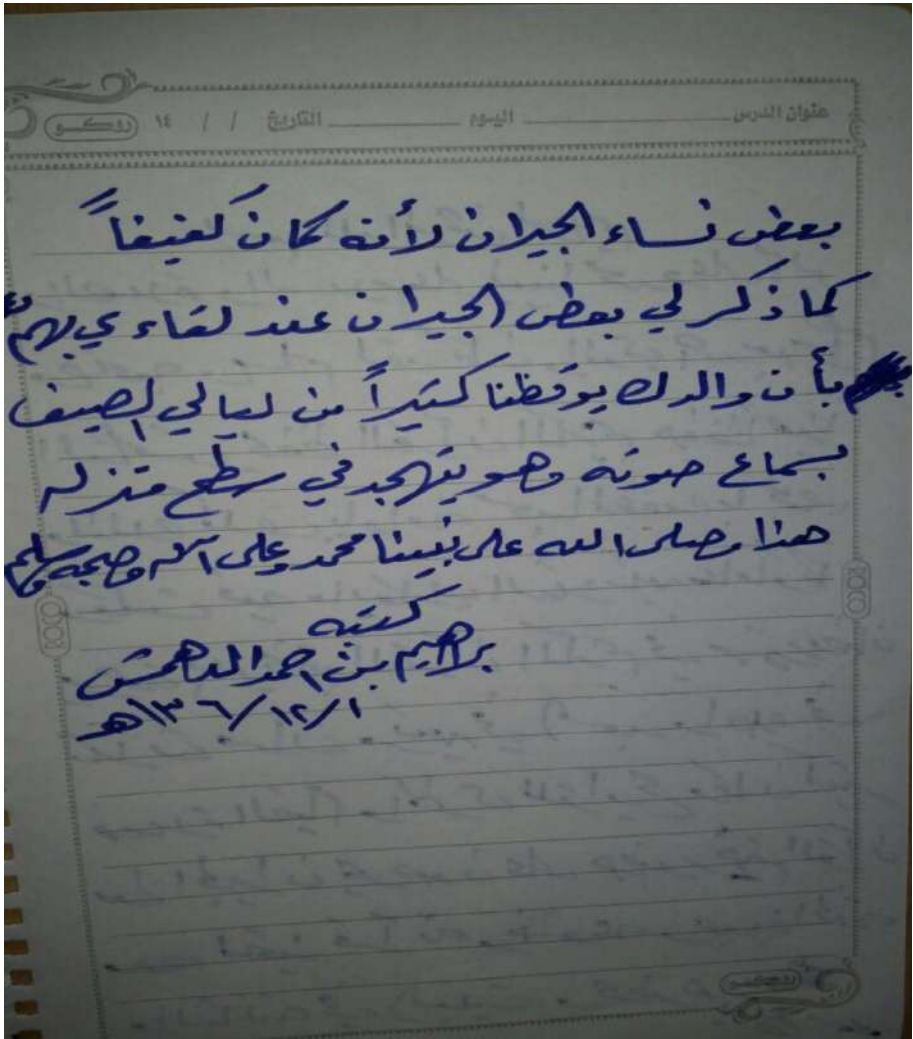 عنوان الدرس اليوم التاريخ / / ١٤ روكو
بعض نساء الجيران لأنه كان كفيفاً
كما ذكر لي بعض الجيران عند لقاءي بهم
بأن والدك يوقظنا كثيراً من ليالي الصيف
بسماع صوته وهو يتهجد في سطح منزله
هذا وصلى الله على نبينا محمد وعلى آله وصحبه وسلم
كتبه
براهيم بن احمد الدهمش
١ / ١٢ / ١٣٦هـ
روكو